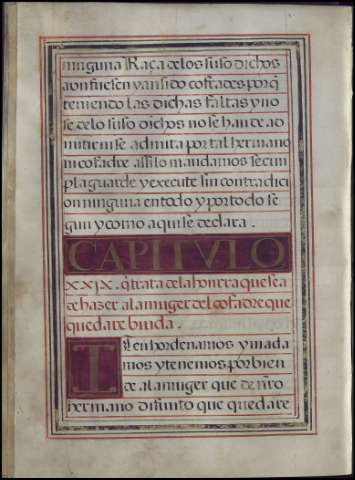 ninguna Raça delos suso dichos
aon fuesen yansido cofrades porq̃
teniendo las dichas faltas yno
se delo suso dichos no se han de ad
mitir nise admita por tal hermano
ni cofadre assilo mandamos se cun
pla guarde y execute sin contradici
on ninguna entodo y portodo se
gun y como aqui se declara.
CAPITVLO
XXIX. q̃ trata de la honrra que sea
de hazer ala muger del cofadre que
quedare biuda.
ITen hordenamos y mada
mos y tenemos por bien
de ala muger que de nr̃o
hermano difunto que quedare